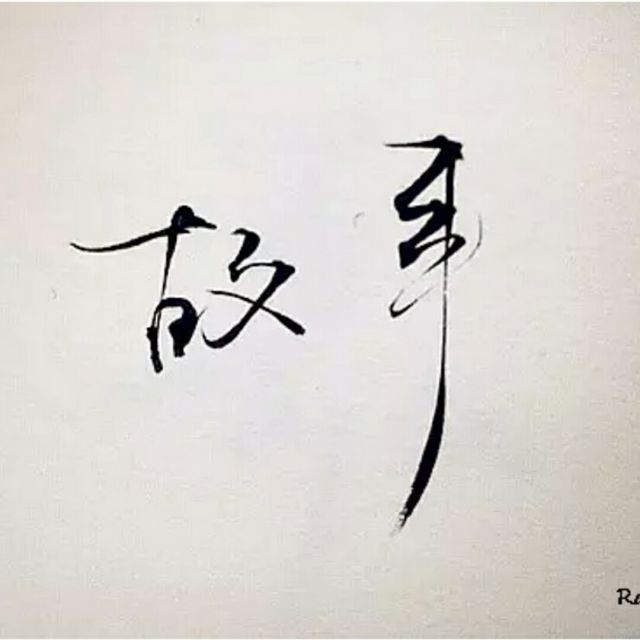 故事
Re